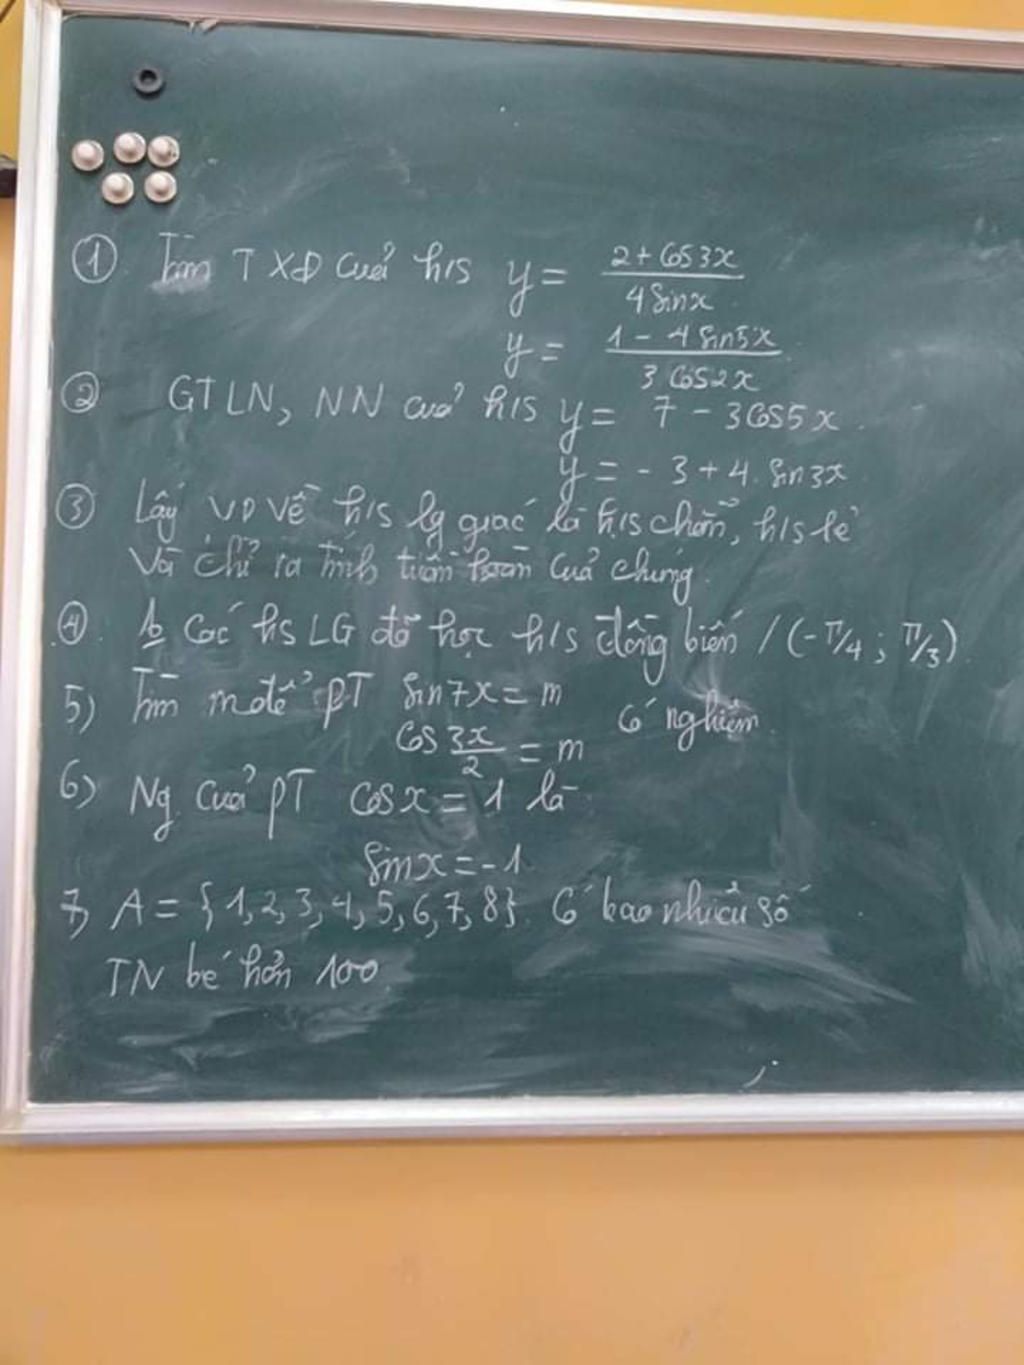 ① Tìm TXĐ của h/s y = (2 + cos3x)/(4 sinx)
y = (1 - 4 sin5x)/(3 cos2x)
② GTLN, NN của h/s y = 7 - 3cos5x
y = - 3 + 4. sin3x
③ Lấy VD về h/s lg giác là h/s chẵn, h/s lẻ
Và chỉ ra tính tuần hoàn của chúng.
④ các hs LG đã học h/s đồng biến / (-π/4 ; π/3)
5) Tìm m để PT sin7x = m
cos 3x/2 = m có nghiệm.
6) Ng của PT cosx = 1 là
sinx = -1
7, A = {1, 2, 3, 4, 5, 6, 7, 8}. Có bao nhiêu số
TN bé hơn 100.